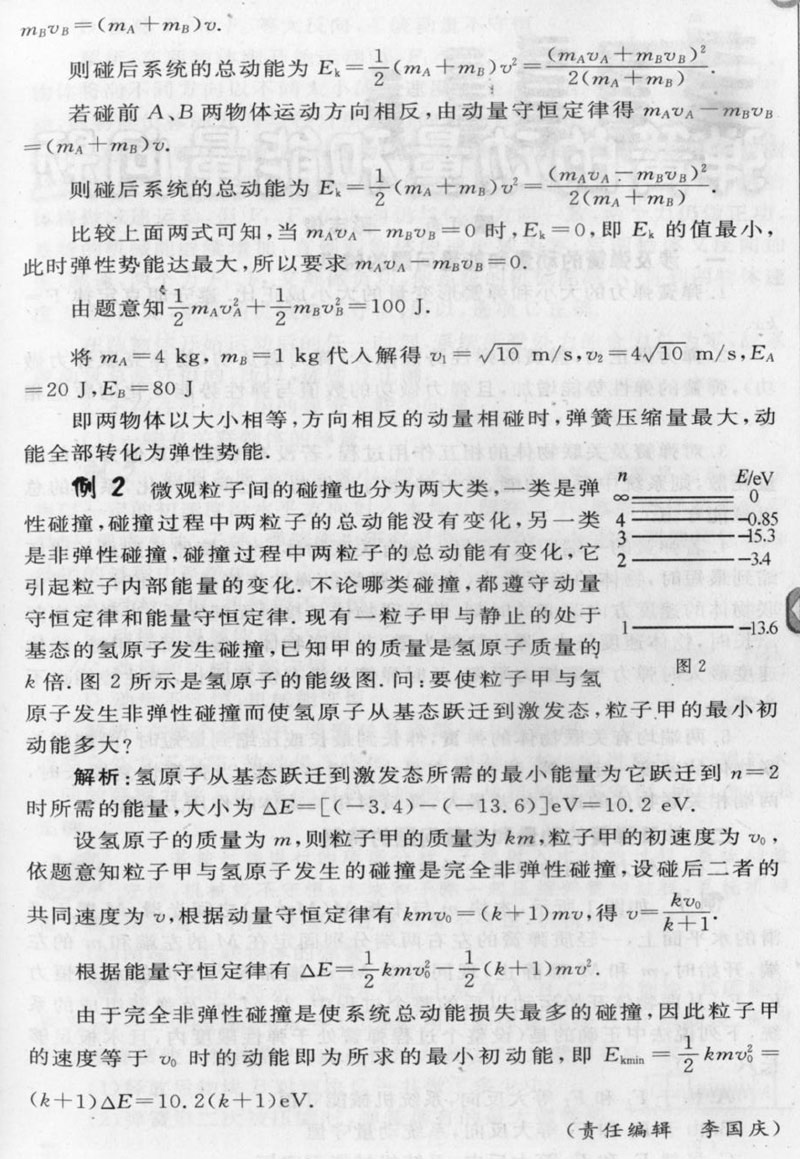 mBvB=(mA+mB)v.
则碰后系统的总动能为 Ek=1/2(mA+mB)v²=(mAvA+mBvB)²/2(mA+mB).
若碰前 A、B 两物体运动方向相反,由动量守恒定律得 mAvA-mBvB
=(mA+mB)v.
则碰后系统的总动能为 Ek=1/2(mA+mB)v²=(mAvA-mBvB)²/2(mA+mB).
比较上面两式可知,当 mAvA-mBvB=0 时,Ek=0,即 Ek 的值最小,
此时弹性势能达最大,所以要求 mAvA-mBvB=0.
由题意知 1/2mAvA²+1/2mBvB²=100 J.
将 mA=4 kg, mB=1 kg 代入解得 v1=√10 m/s,v2=4√10 m/s,EA
=20 J,EB=80 J
即两物体以大小相等,方向相反的动量相碰时,弹簧压缩量最大,动
能全部转化为弹性势能.
例 2 微观粒子间的碰撞也分为两大类,一类是弹
性碰撞,碰撞过程中两粒子的总动能没有变化,另一类
是非弹性碰撞,碰撞过程中两粒子的总动能有变化,它
引起粒子内部能量的变化.不论哪类碰撞,都遵守动量
守恒定律和能量守恒定律.现有一粒子甲与静止的处于
基态的氢原子发生碰撞,已知甲的质量是氢原子质量的
k 倍.图 2 所示是氢原子的能级图.问:要使粒子甲与氢
原子发生非弹性碰撞而使氢原子从基态跃迁到激发态,粒子甲的最小初
动能多大?
n E/eV
∞ 0
4 -0.85
3 -15.3
2 -3.4
1 -13.6
图 2
解析:氢原子从基态跃迁到激发态所需的最小能量为它跃迁到 n=2
时所需的能量,大小为 △E=[(-3.4)-(-13.6)]eV=10.2 eV.
设氢原子的质量为 m,则粒子甲的质量为 km,粒子甲的初速度为 v0,
依题意知粒子甲与氢原子发生的碰撞是完全非弹性碰撞,设碰后二者的
共同速度为 v,根据动量守恒定律有 kmv0=(k+1)mv,得 v=kv0/k+1.
根据能量守恒定律有 △E=1/2kmv0²-1/2(k+1)mv².
由于完全非弹性碰撞是使系统总动能损失最多的碰撞,因此粒子甲
的速度等于 v0 时的动能即为所求的最小初动能,即 Ekmin=1/2kmv0²=
(k+1)△E=10.2(k+1)eV.
(责任编辑 李国庆)